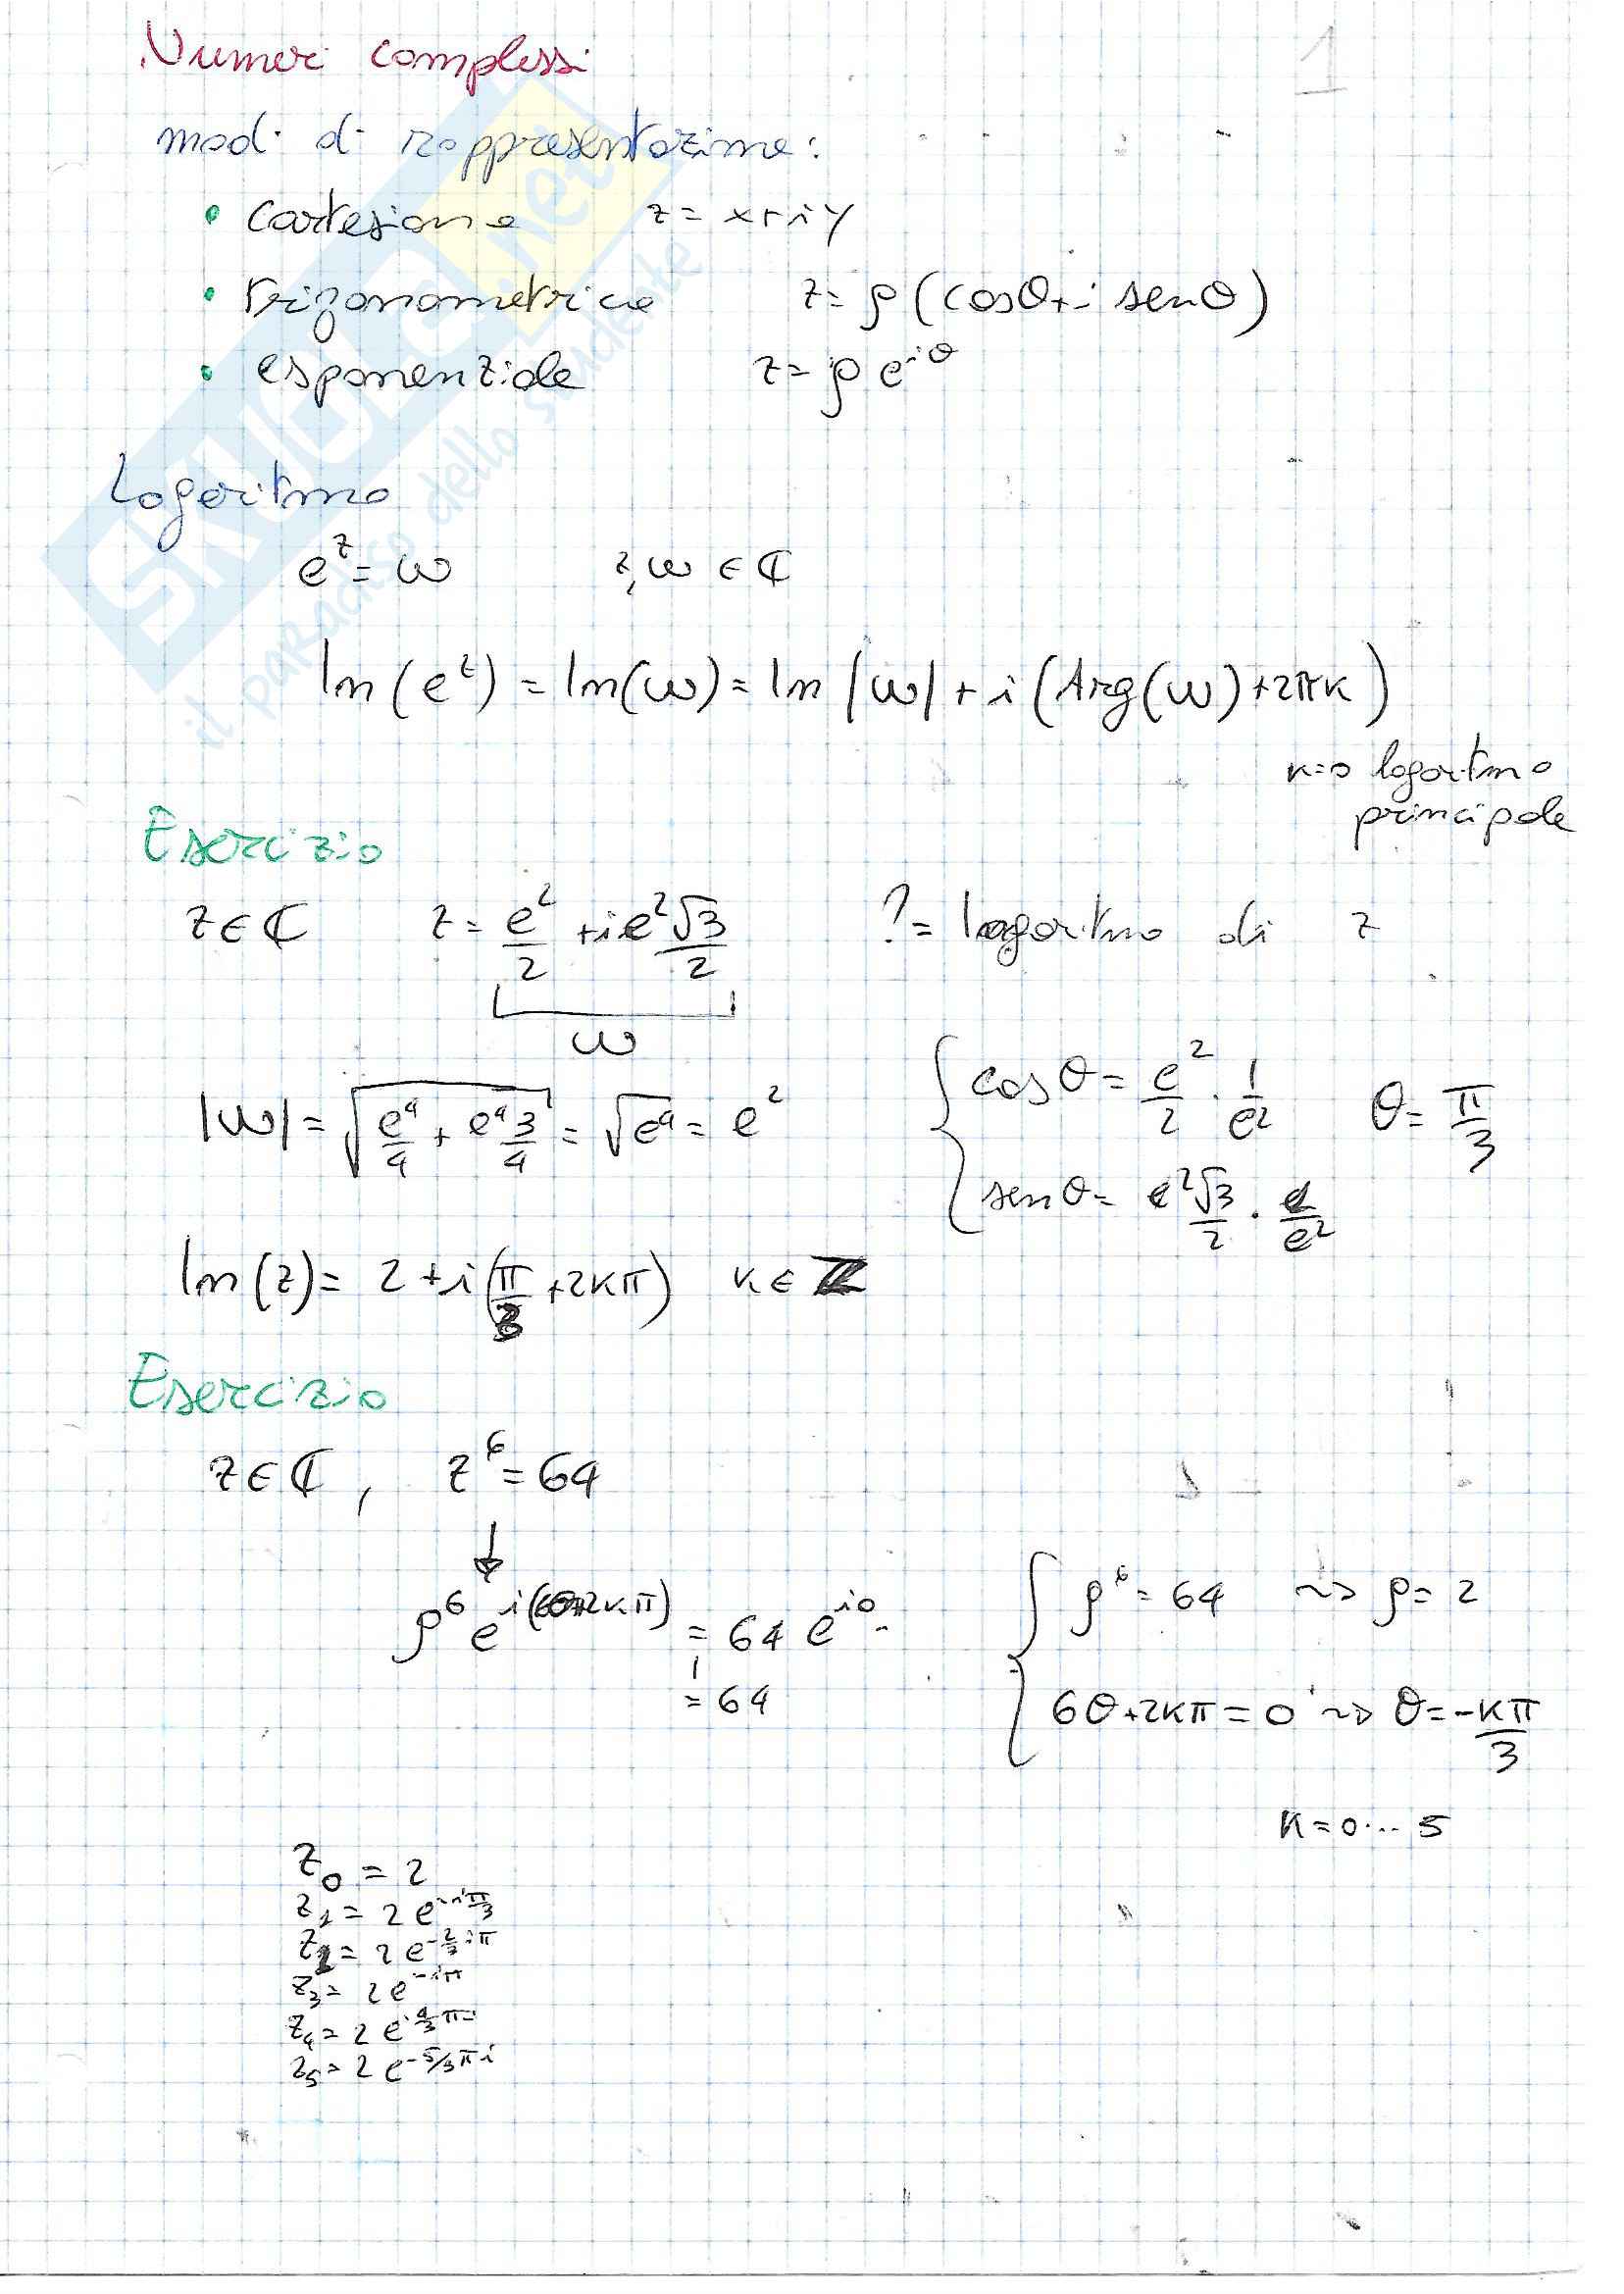 Numeri complessi
1
modi di rappresentazione:
• cartesiana z = x+iy
• trigonometrica z = ρ(cosθ+i senθ)
• esponenziale z = ρ e^{iθ}
Logaritmo
e^z = ω z,ω ∈ ℂ
ln(e^z) = ln(ω) = ln|ω| + i(Arg(ω)+2πk)
k=0 logaritmo
principale
Esercizio
z∈ℂ z = e²/2 + i e²√3/2 ? = logaritmo di z
ω
|ω| = √(e⁴/4 + e⁴3/4) = √e⁴ = e²
{ cosθ = e²/2 · 1/e² θ = π/3
senθ = e²√3/2 · 1/e²
ln(z) = 2 + i(π/3 + 2kπ) k∈ℤ
Esercizio
z∈ℂ, z⁶ = 64
↓
ρ⁶ e^{i(6θ+2kπ)} = 64 e^{i0}
= 64
{ ρ⁶ = 64 ~> ρ = 2
6θ+2kπ = 0 ~> θ = -kπ/3
k = 0... 5
z₀ = 2
z₁ = 2 e^{-iπ/3}
z₂ = 2 e^{-2/3 iπ}
z₃ = 2 e^{-iπ}
z₄ = 2 e^{-4/3 πi}
z₅ = 2 e^{-5/3 πi}
SKUOLA.net
il paradiso dello studente